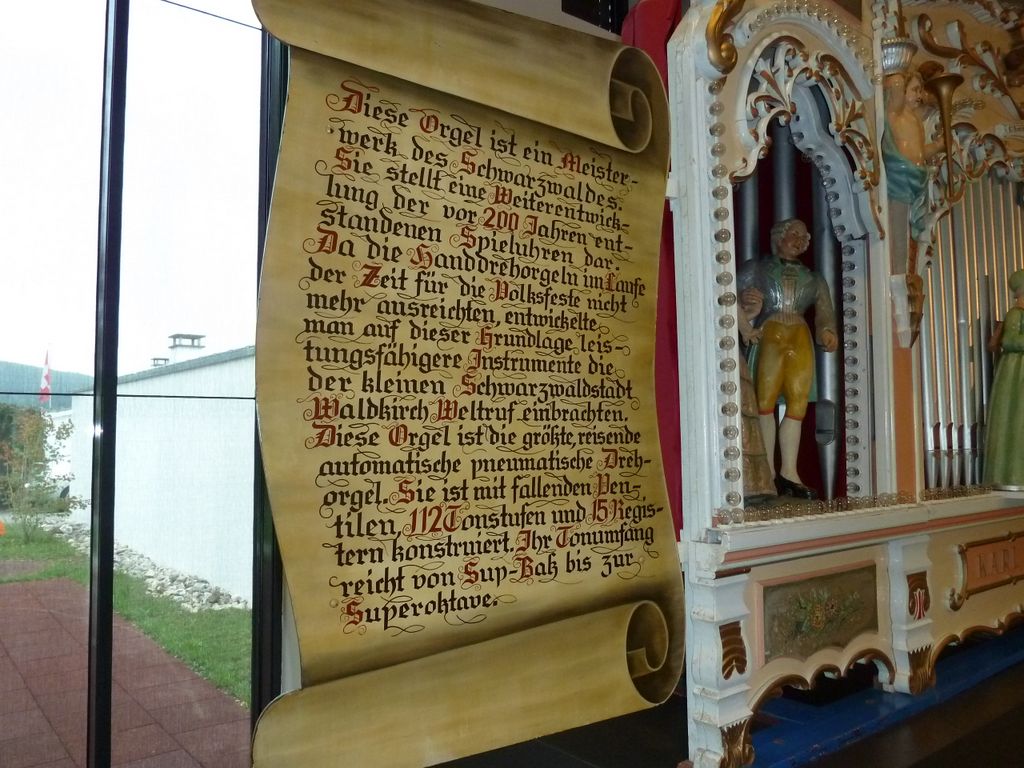 Diese Orgel ist ein Meister-
werk des Schwarzwaldes.
Sie stellt eine Weiterentwick-
lung der vor 200 Jahren ent-
standenen Spieluhren dar.
Da die Handdrehorgeln im Laufe
der Zeit für die Volksfeste nicht
mehr ausreichten, entwickelte
man auf dieser Grundlage leis-
tungsfähigere Instrumente die
der kleinen Schwarzwaldstadt
Waldkirch Weltruf einbrachten.
Diese Orgel ist die größte, reisende
automatische pneumatische Dreh-
orgel. Sie ist mit fallenden Ven-
tilen, 112 Tonstufen und 15 Regis-
tern konstruiert. Ihr Tonumfang
reicht von Sup-Baß bis zur
Superoktave.
KARL